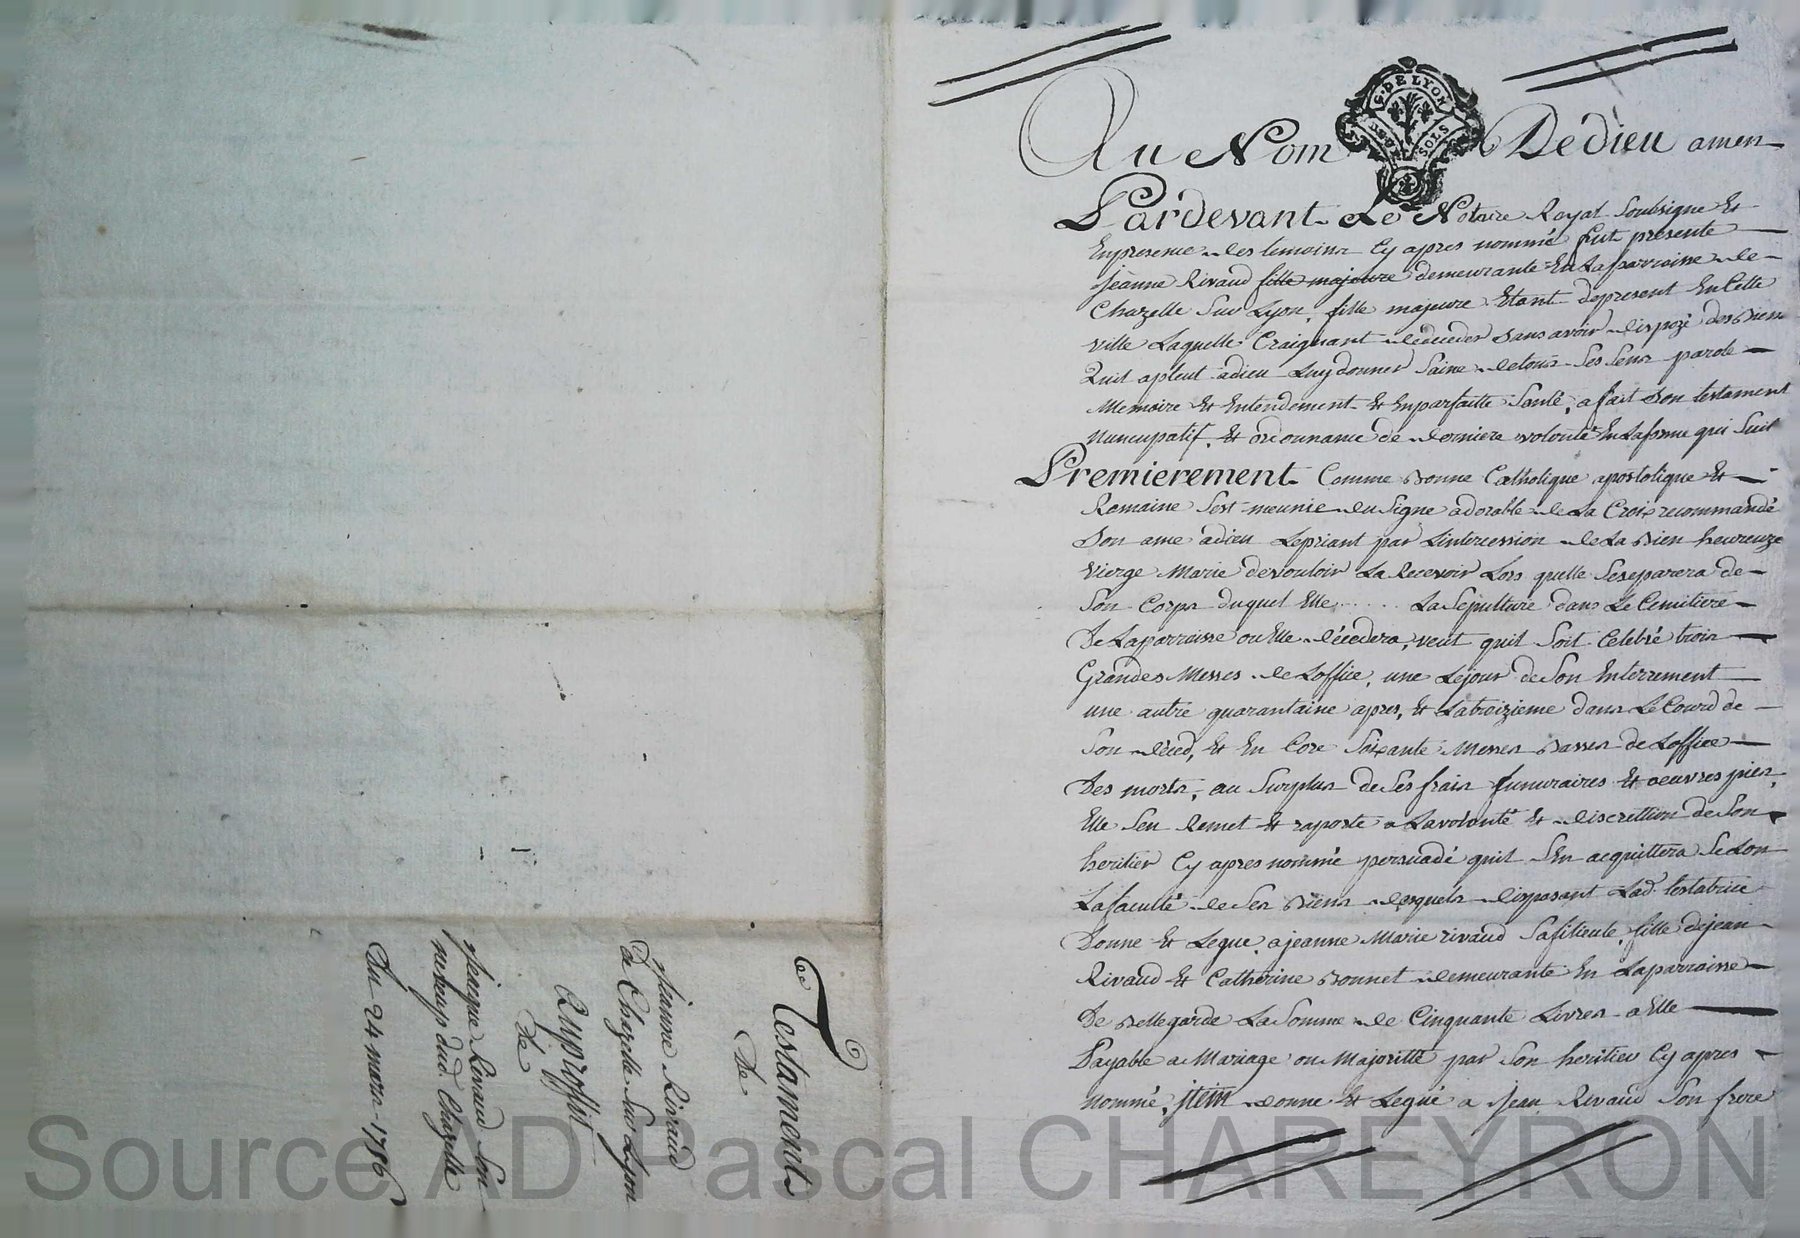 Testament
De
Jeanne Rivaud
De Chazelle Sur Lyon
Auproffis
De
Jacque Rivaud Son
neveup dud. Chazelle
Du 24 mars 1786
G. DE LYON
SOLS
Au Nom De dieu amen
Pardevant Le Notaire Royal Soubsigné Et
En presence des temoins Cy apres nommé fut presente
Jeanne Rivaud fille majeure demeurante En Laparroisse de
Chazelle Sur Lyon, fille majeure Etant depresent En Cette
ville Laquelle Craignant dedeceder Sans avoir dispozé des Biens
Quil apleut adieu Luy donner Saine detous Ses Sens parole
Memoire Et Entendement Et Enparfaitte Santé, a fait Son testament
Nuncupatif, Et ordonnance de derniere volonté En Laforme qui Suit
Premierement Comme Bonne Catholique apostolique Et
Romaine Sest meunie du Signe adorable de La Croix recommandé
Son ame adieu Lepriant par Lintercession de La Bien heureuze
Vierge Marie devouloir La Recevoir Lors quelle Seseparera de
Son Corps duquel Elle ..... La Sepulture dans Le Cemitiere
De Laparroisse ou Elle décedera, veut quil Soit Celebré trois
Grandes Messes de Loffice, une Lejour de Son Enterrement
une autre quarantaine apres, Et Latroizieme dans Le Courd de
Son deced, Et En Core Soixante Messes Basses de Loffice
Des morts, au Surplus de Ses frais funuraires Et oeuvres pies,
Elle Sen Remet Et raporte a Lavolonté Et discrettion de Son
heritier Cy apres nommé persuadé quil Sen acquittera Selon
Lafaculté de Ses Biens desquels disposant Lad. testatrice
Donne Et Legue, a jeanne Marie rivaud Safilieule, fille dejean
Rivaud Et Catherine Bonnet demeurante En Laparroisse
De Bellegarde La Somme de Cinquante Livres a Elle
Payable a Mariage ou Majoritté par Son heritier Cy apres
nommé, jtem donne Et Legué a Jean Rivaud Son frere
Source AD Pascal CHAREYRON